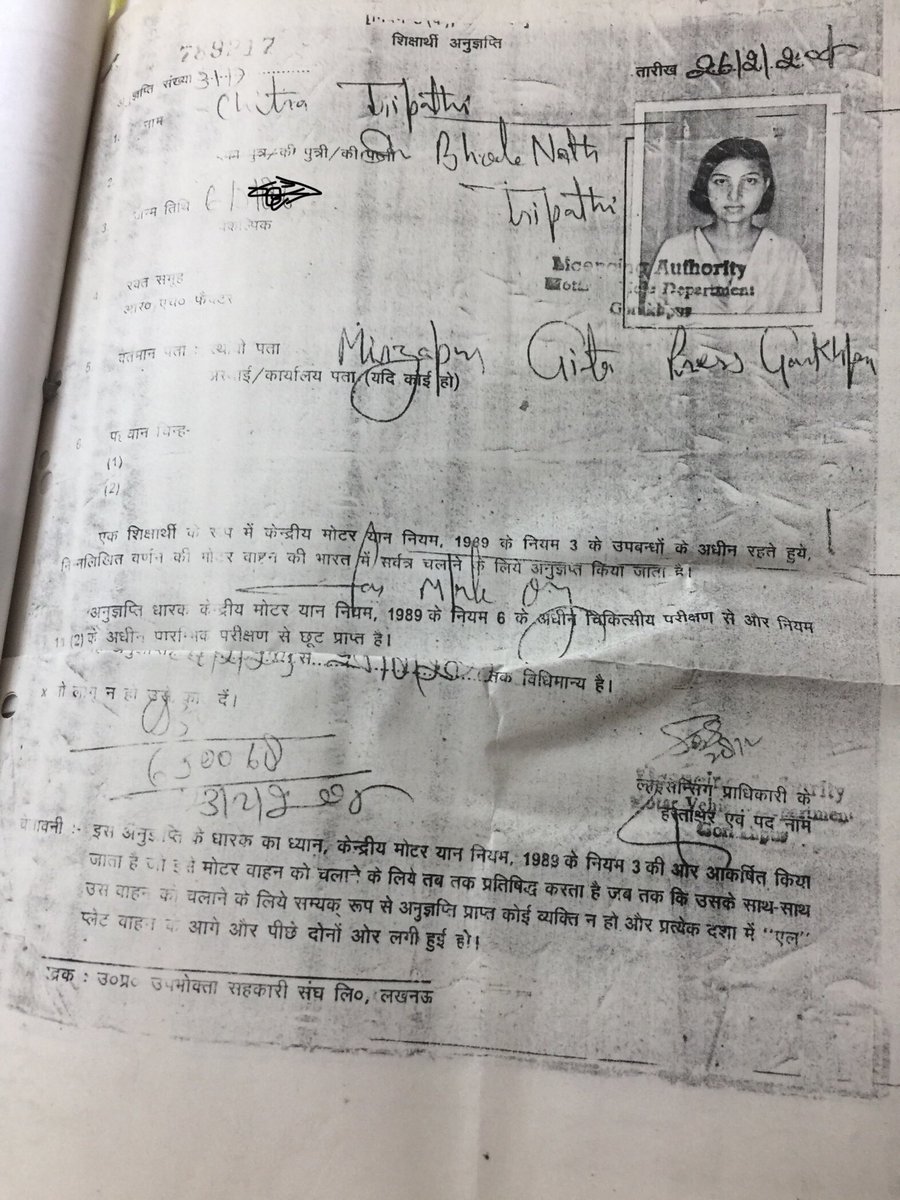 शिक्षार्थी अनुज्ञप्ति
तारीख 26/2/
संख्या
नाम Chitra Tripathi
पुत्र/की पुत्री/की Bhole Nath
Tripathi
तिथि
Licensing Authority
Department
रक्त समूह
आर०एच० फैक्टर
5. वर्तमान पता : पता Mirzapur Gita Press Gorakhpur
अस्थाई/कार्यालय पता (यदि कोई हो)
6
(1)
(2)
एक शिक्षार्थी के रूप में केन्द्रीय मोटर यान नियम, 1989 के नियम 3 के उपबन्धों के अधीन रहते हुये,
निम्नलिखित वर्णन की मोटर वाहन की भारत में सर्वत्र चलाने के लिये अनुज्ञप्त किया जाता है।
अनुज्ञप्ति धारक केन्द्रीय मोटर यान नियम, 1989 के नियम 6 के अधीन चिकित्सीय परीक्षण से और नियम
11 (2) के अधीन प्रारम्भिक परीक्षण से छूट प्राप्त है।
से तक विधिमान्य है।
x जो लागू न हो उसे काट दें।
लाइसेन्सिंग प्राधिकारी के
हस्ताक्षर एवं पद नाम
चेतावनी :- इस अनुज्ञप्ति के धारक का ध्यान, केन्द्रीय मोटर यान नियम, 1989 के नियम 3 की ओर आकर्षित किया
जाता है जो इसे मोटर वाहन को चलाने के लिये तब तक प्रतिषिद्ध करता है जब तक कि उसके साथ-साथ
उस वाहन को चलाने के लिये सम्यक् रूप से अनुज्ञप्ति प्राप्त कोई व्यक्ति न हो और प्रत्येक दशा में "एल"
प्लेट वाहन के आगे और पीछे दोनों ओर लगी हुई हो।
मुद्रक : उ०प्र० उपभोक्ता सहकारी संघ लि०, लखनऊ